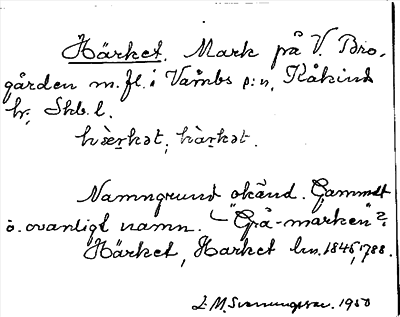 Härket. Mark på V. Bro-
gården m.fl. i Våmbs s:n, Kåkinds
hr, Skb. l.
hæ̀rkət, hàrkət.
Namngrund okänd. Gammalt
o. ovanligt namn. "Grå-marken"?
Härket, Harket lm. 1846, 1788.
1950